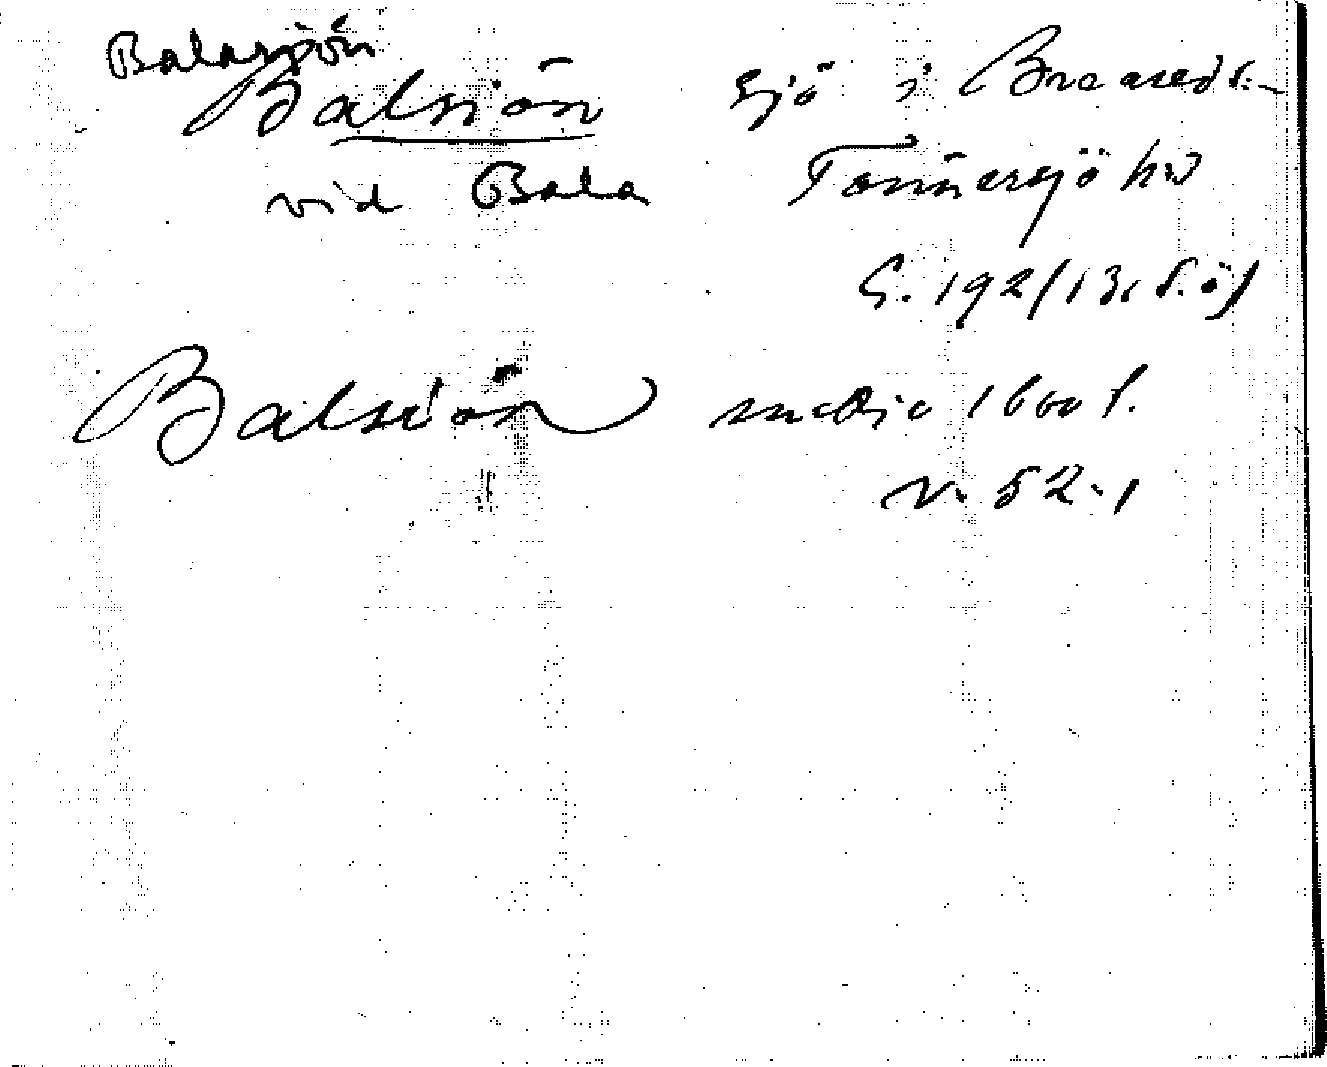 Balasjön
Balsiön sjö i Breared s.
vid Bala Tönnersjö hd
G. 192/13, s.ö)
Balsiön medio 1600 t.
v. 52.1